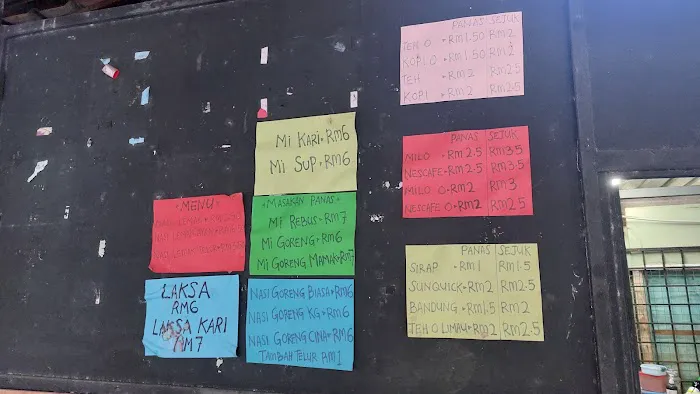 MI KARI = RM6
MI SUP = RM6
MENU
MASAKAN PANAS
MI REBUS = RM7
MI GORENG = RM6
MI GORENG MAMAK = RM7
LAKSA
RM6
LAKSA KARI
RM7
NASI GORENG BIASA = RM6
NASI GORENG KG = RM6
NASI GORENG CINA = RM6
TAMBAH TELUR RM1
PANAS SEJUK
TEH O = RM1.50 RM2
KOPI O = RM1.50 RM2
TEH = RM2 RM2.5
KOPI = RM2 RM2.5
PANAS SEJUK
MILO = RM2.5 RM3.5
NESCAFE = RM2.5 RM3.5
MILO O = RM2 RM3
NESCAFE O = RM2 RM2.5
PANAS SEJUK
SIRAP = RM1 RM1.5
SUNQUICK = RM2 RM2
BANDUNG = RM1.5 RM2
TEH O LIMAU = RM2 RM2.5